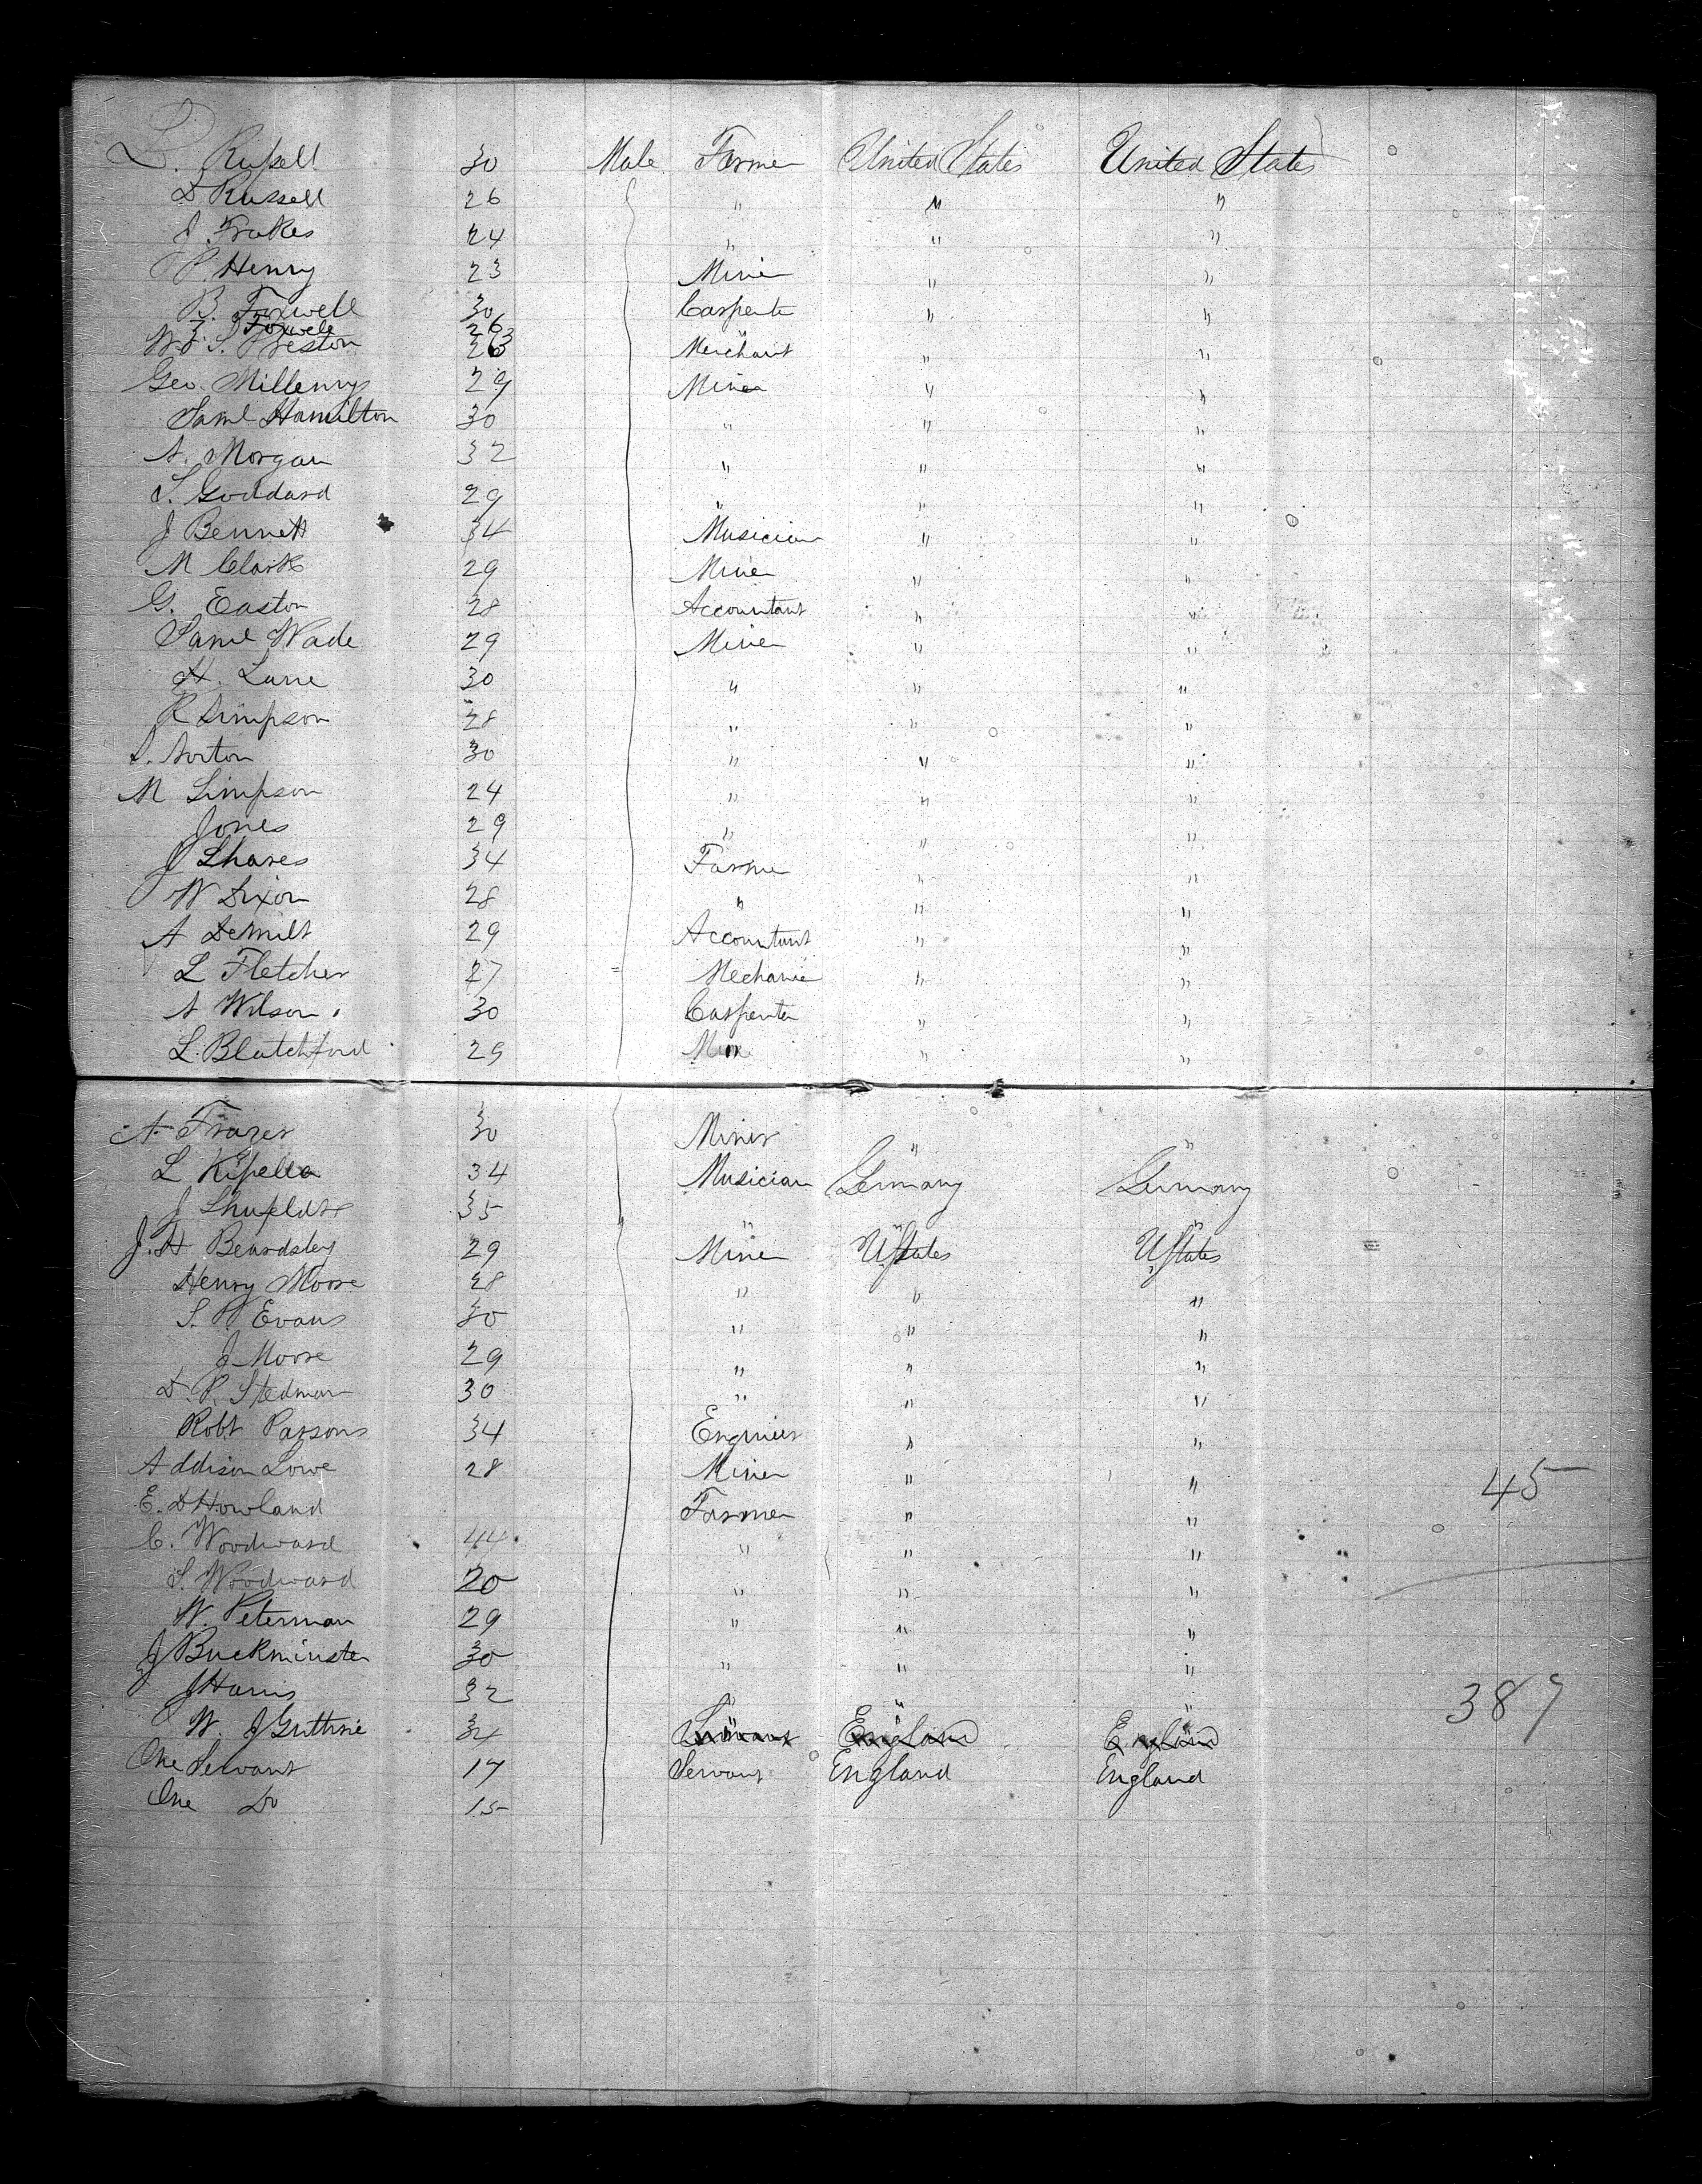 L. Russell 30 Male Farmer United States United States
D Russell 26 " " "
J Frakes 24 " " "
P. Henry 23 Miner " "
B. Foxwell 30 Carpenter " "
Z. Foxwell 26 "
Wm S. Preston 23 Merchant " "
Geo. Millenry 29 Miner " "
Saml Hamilton 30 " " "
A. Morgan 32 " " "
S. Goddard 29 " " "
J Bennett 34 Musician " "
M Clark 29 Miner " "
G. Easton 28 Accountant " "
Saml Wade 29 Miner " "
H. Lane 30 " " "
R Simpson 28 " " "
S. Norton 30 " " "
M Simpson 24 " " "
Jones 29 " " "
J Shares 34 Farmer " "
W Dixon 28 " " "
A Demilt 29 Accountant " "
L Fletcher 27 Mechanic " "
A Wilson 30 Carpenter " "
L. Blatchford 29 " "
A. Frazer 30 Miner " "
L 34 Musician Germany Germany
J Shufeldt 35 " " "
J. H Beardsley 29 Miner UStates UStates
Henry Moore 28 " " "
S. P. Evans 30 " " "
J Moore 29 " " "
D. P. Stedman 30 " " "
Robt Parsons 34 Engineer " "
Addison Lowe 28 Miner " " 45
E. D Howland Farmer " "
C. Woodward 44 " " "
S. Woodward 20 " " "
W. Peterman 29 " " "
J Buckminster 30 " " "
J Harris 32 " " " 389
W. J Guthrie 34 " " "
One Servant 17 Servant England England
One Do 15